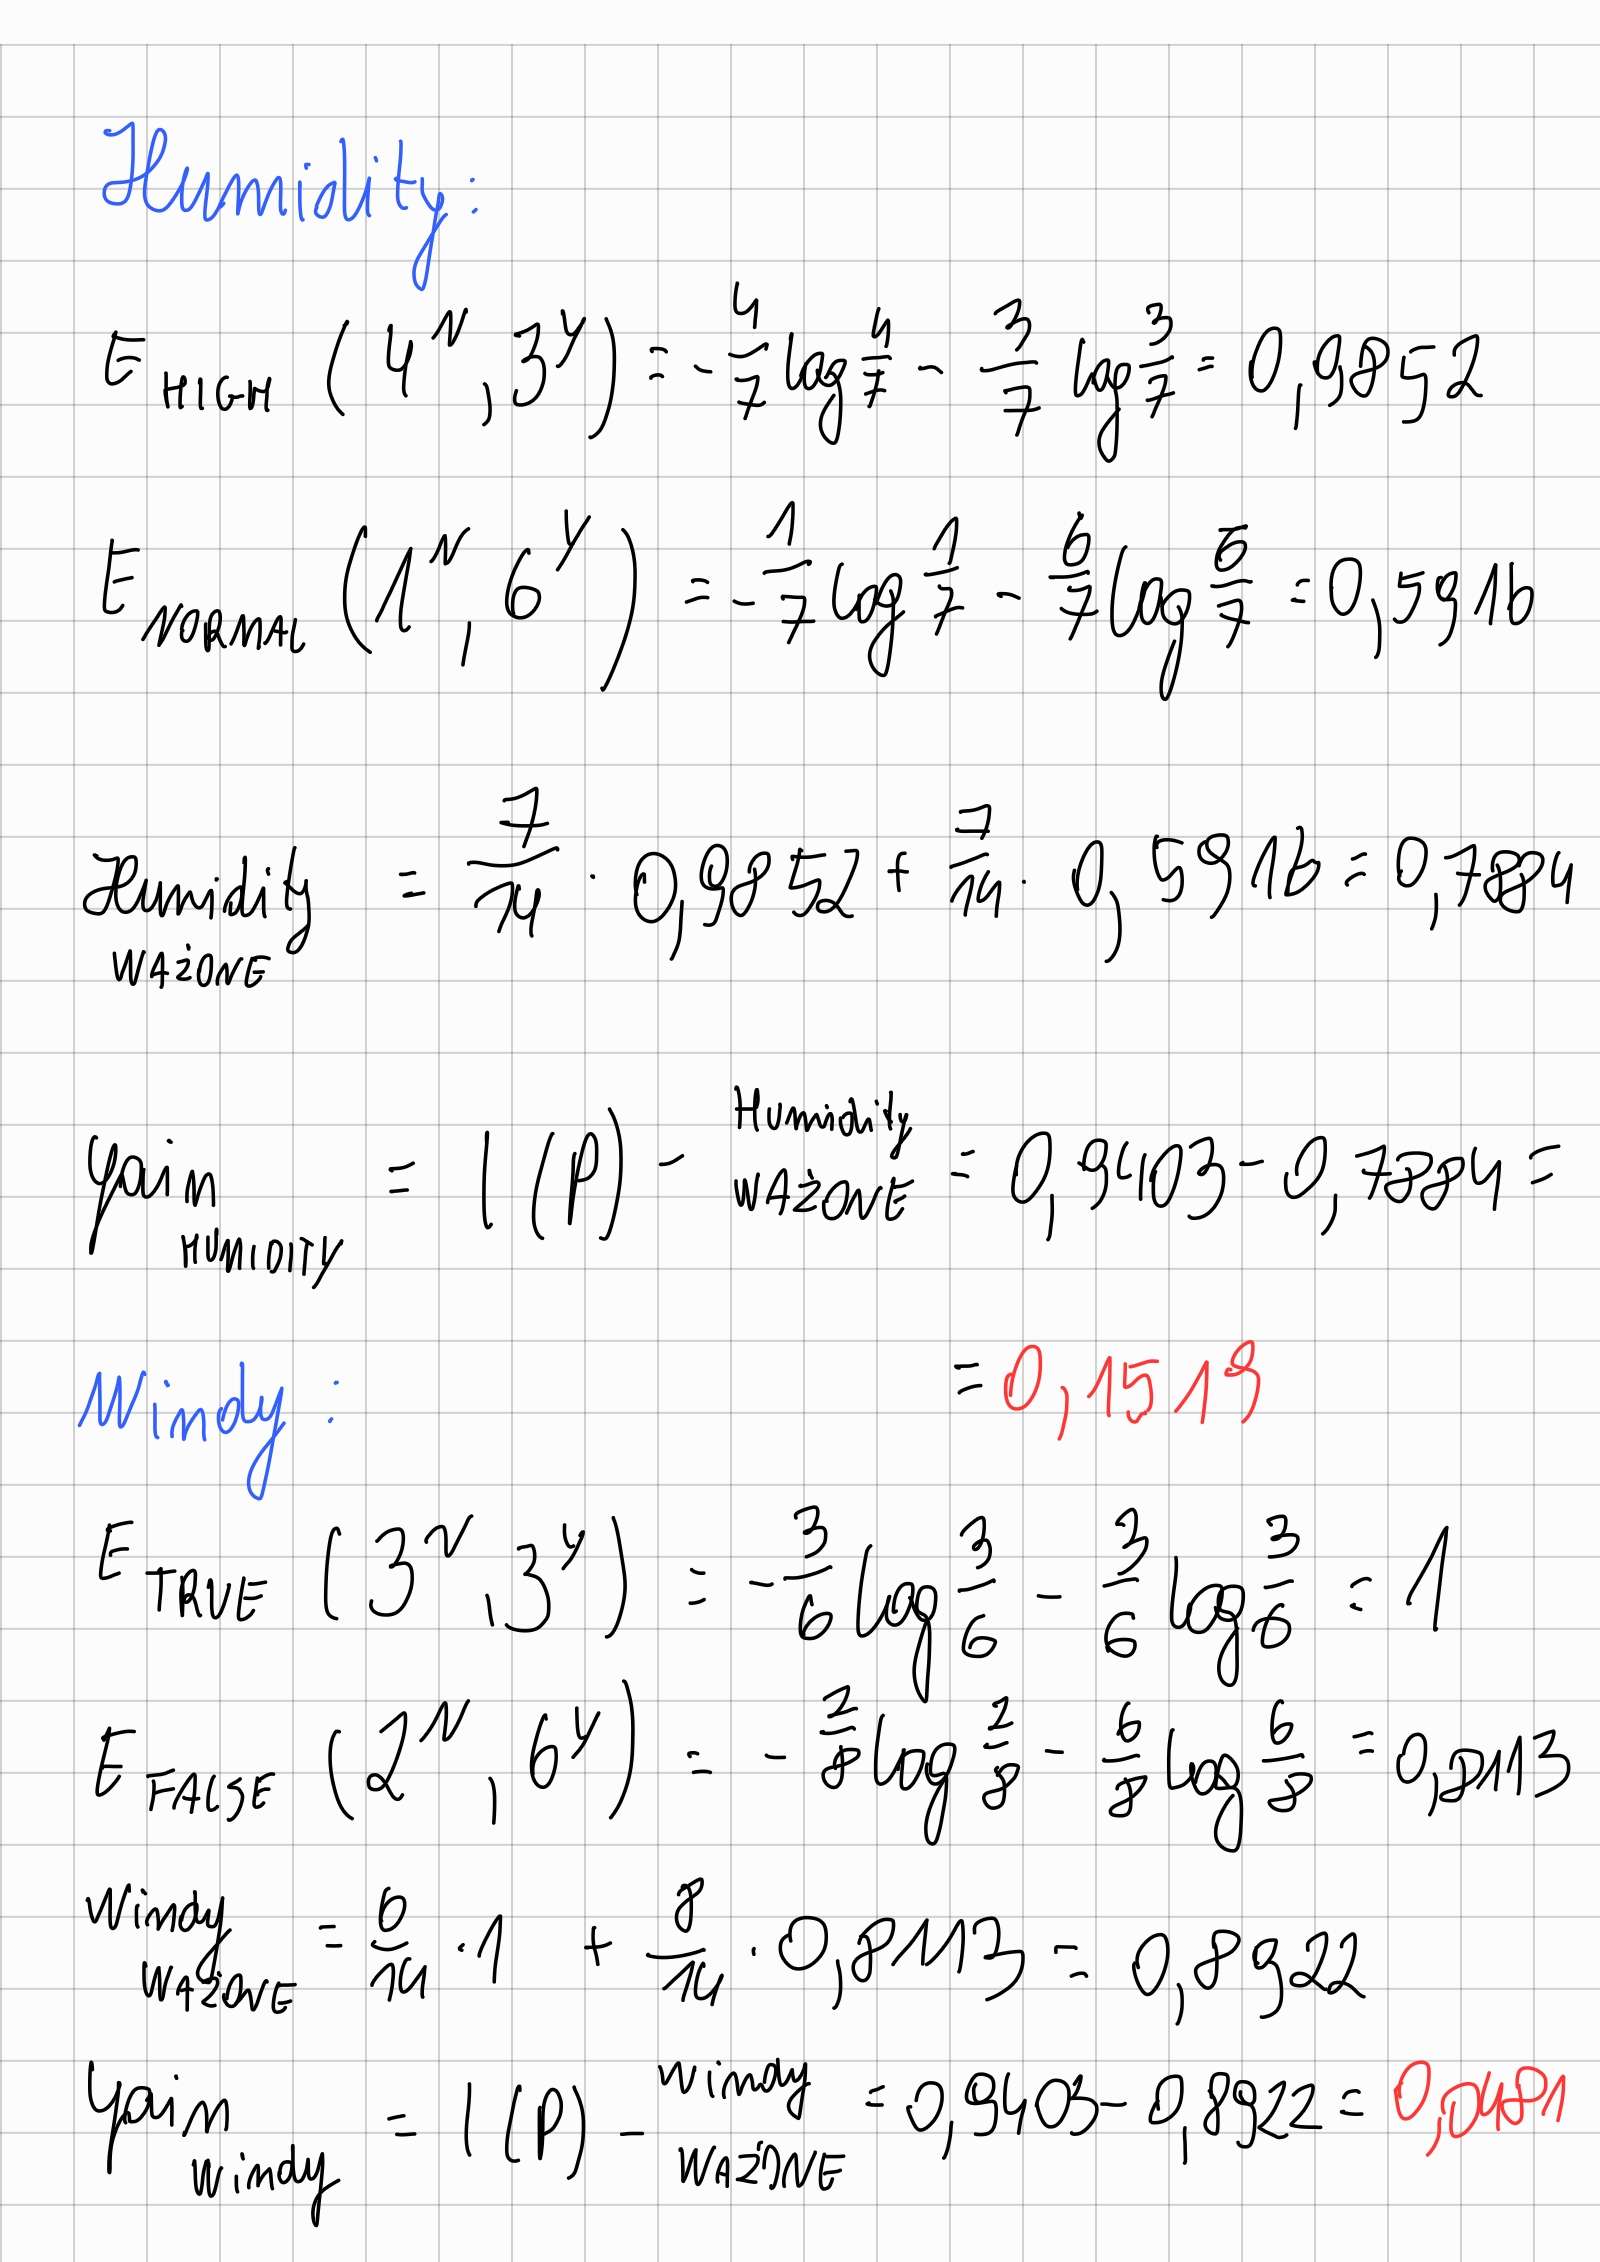 Humidity:
E HIGH (4^N, 3^Y) = - 4/7 log 4/7 - 3/7 log 3/7 = 0,9852
E NORMAL (1^N, 6^Y) = - 1/7 log 1/7 - 6/7 log 6/7 = 0,5916
Humidity WAŻONE = 7/14 · 0,9852 + 7/14 · 0,5916 = 0,7884
Gain HUMIDITY = I(P) - Humidity WAŻONE = 0,9403 - 0,7884 =
= 0,1519
Windy:
E TRUE (3^N, 3^Y) = - 3/6 log 3/6 - 3/6 log 3/6 = 1
E FALSE (2^N, 6^Y) = - 2/8 log 2/8 - 6/8 log 6/8 = 0,8113
Windy WAŻONE = 6/14 · 1 + 8/14 · 0,8113 = 0,8922
Gain Windy = I(P) - Windy WAŻONE = 0,9403 - 0,8922 = 0,0481